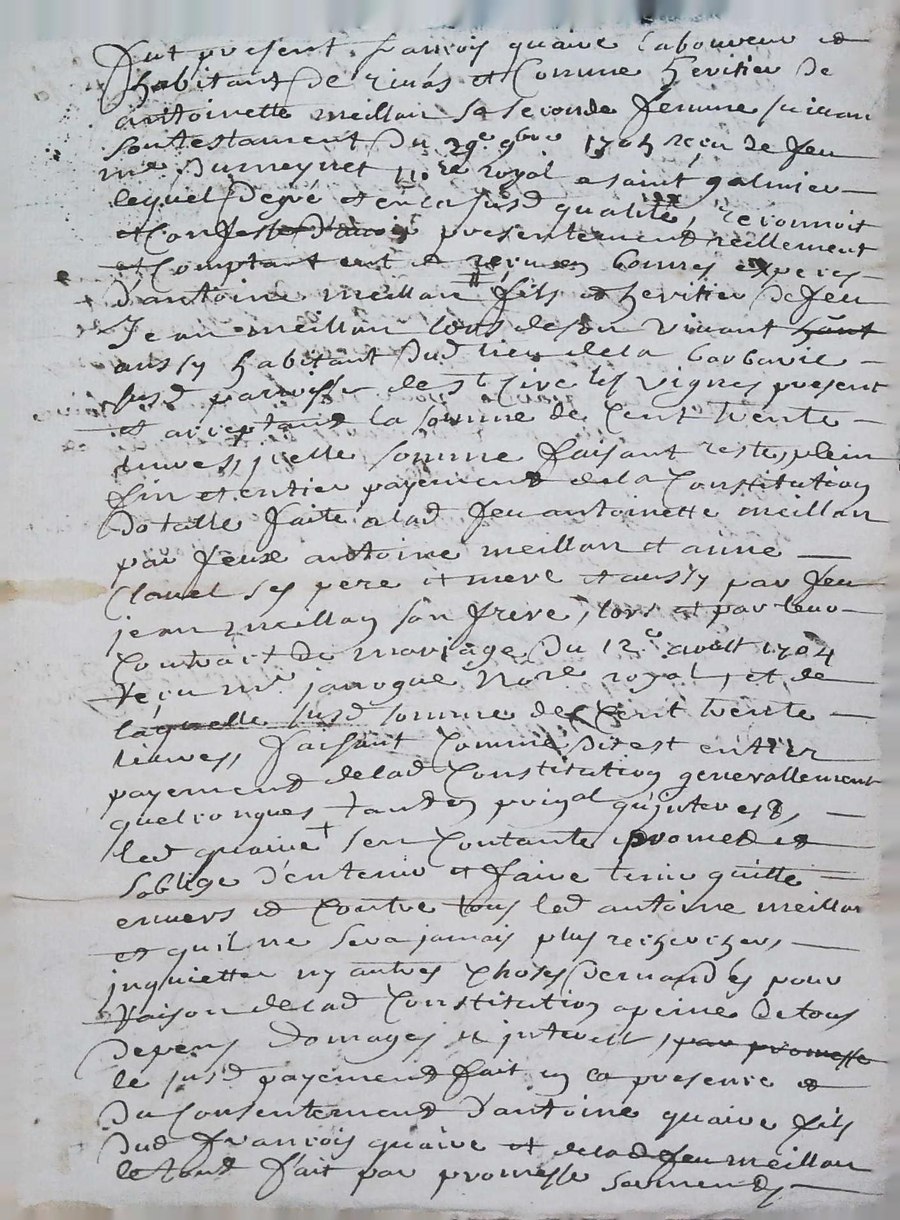 Fut present françois quaire laboureur et
habitant de rivas et Comme heritier de
antoinette meillan sa seconde femme suivan
son testament du 29e. 9bre 1704 reçu de feu
me dumeynet nore royal a saint galmier
lequel de gré et en la susd qualité, reconnoit
et Confesse d'avoir presentement reellement
et Comptant eut et reçu en bonnes especes
d'antoine meillan fils et heritier de feu
Jean meillan lors de son vivant
aussy habitant dud lieu de la barbarie
susd parroisse de st Cire les vignes present
et acceptant la somme de Cent trente
livres, somme faisant reste, plein
fin et entier payement de la Constitution
dotalle faite a lad feu antoinette meillan
par feux antoine meillan et anne
Clavel ses pere et mere et aussy par feu
jean meillan son frere, lors et par leur
Contrait de mariage du 12e avost 1704
reçu me jarrogue Nore royal, et de
laquelle susd somme de Cent trente
livres, faisant Comme dit est entier
payement de lad Constitution generallement
quelconques tant en prinal qu'interest,
led quaire s'en Contante promet et
s'oblige d'en tenir et faire tenir quitte
envers et Contre tous led antoine meillan
et qu'il ne sera jamais plus recherché,
inquietter ny autres Choses demandés pour
raison de lad Constitution a peine de tous
depens domages et interest, par promesse
le susd payement fait en la presence et
du Consentement d'antoine quaire fils
dud françois quaire et de lad feu meillan
le tout fait par promesse serment,